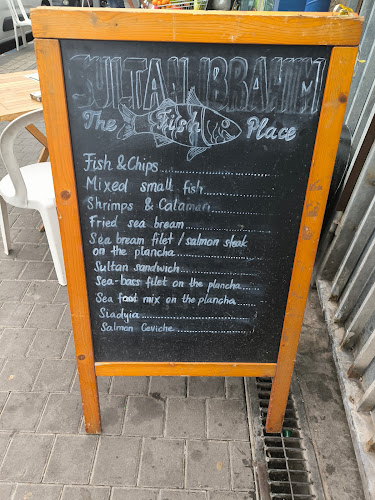 SULTAN IBRAHIM
The Fish Place
Fish & Chips
Mixed small fish
Shrimps & Calamari
Fried sea bream
Sea bream filet / salmon steak
on the plancha
Sultan sandwich
Sea-bass filet on the plancha
Sea food mix on the plancha
Siadyia
Salmon Ceviche